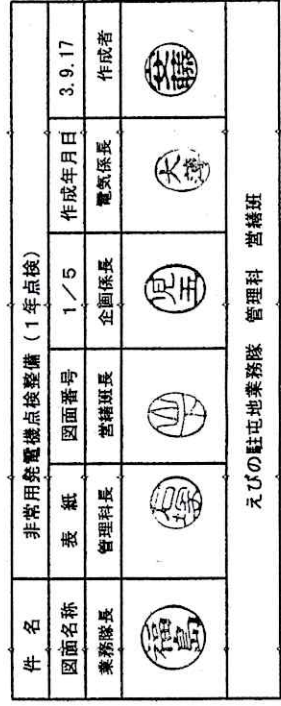 件 名 非常用発電機点検整備（1年点検）
図面名称 表 紙 図面番号 1／5 作成年月日 3.9.17
業務隊長 管理科長 営繕班長 企画係長 電気係長 作成者
福島 石塚 山 児玉 大薄
えびの駐屯地業務隊 管理科 営繕班